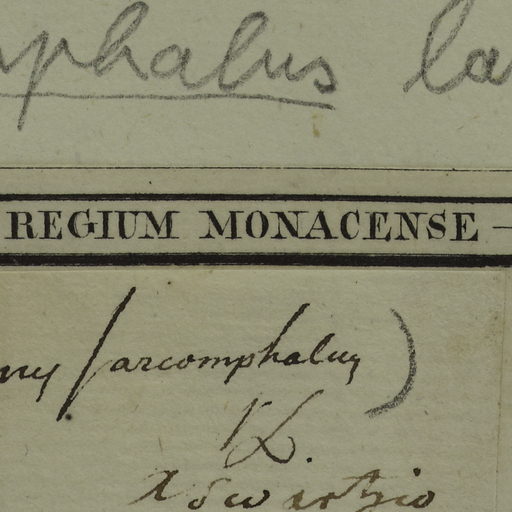 mphalus la
REGIUM MONACENSE —
nus sarcomphalus)
L.
a Swartzio